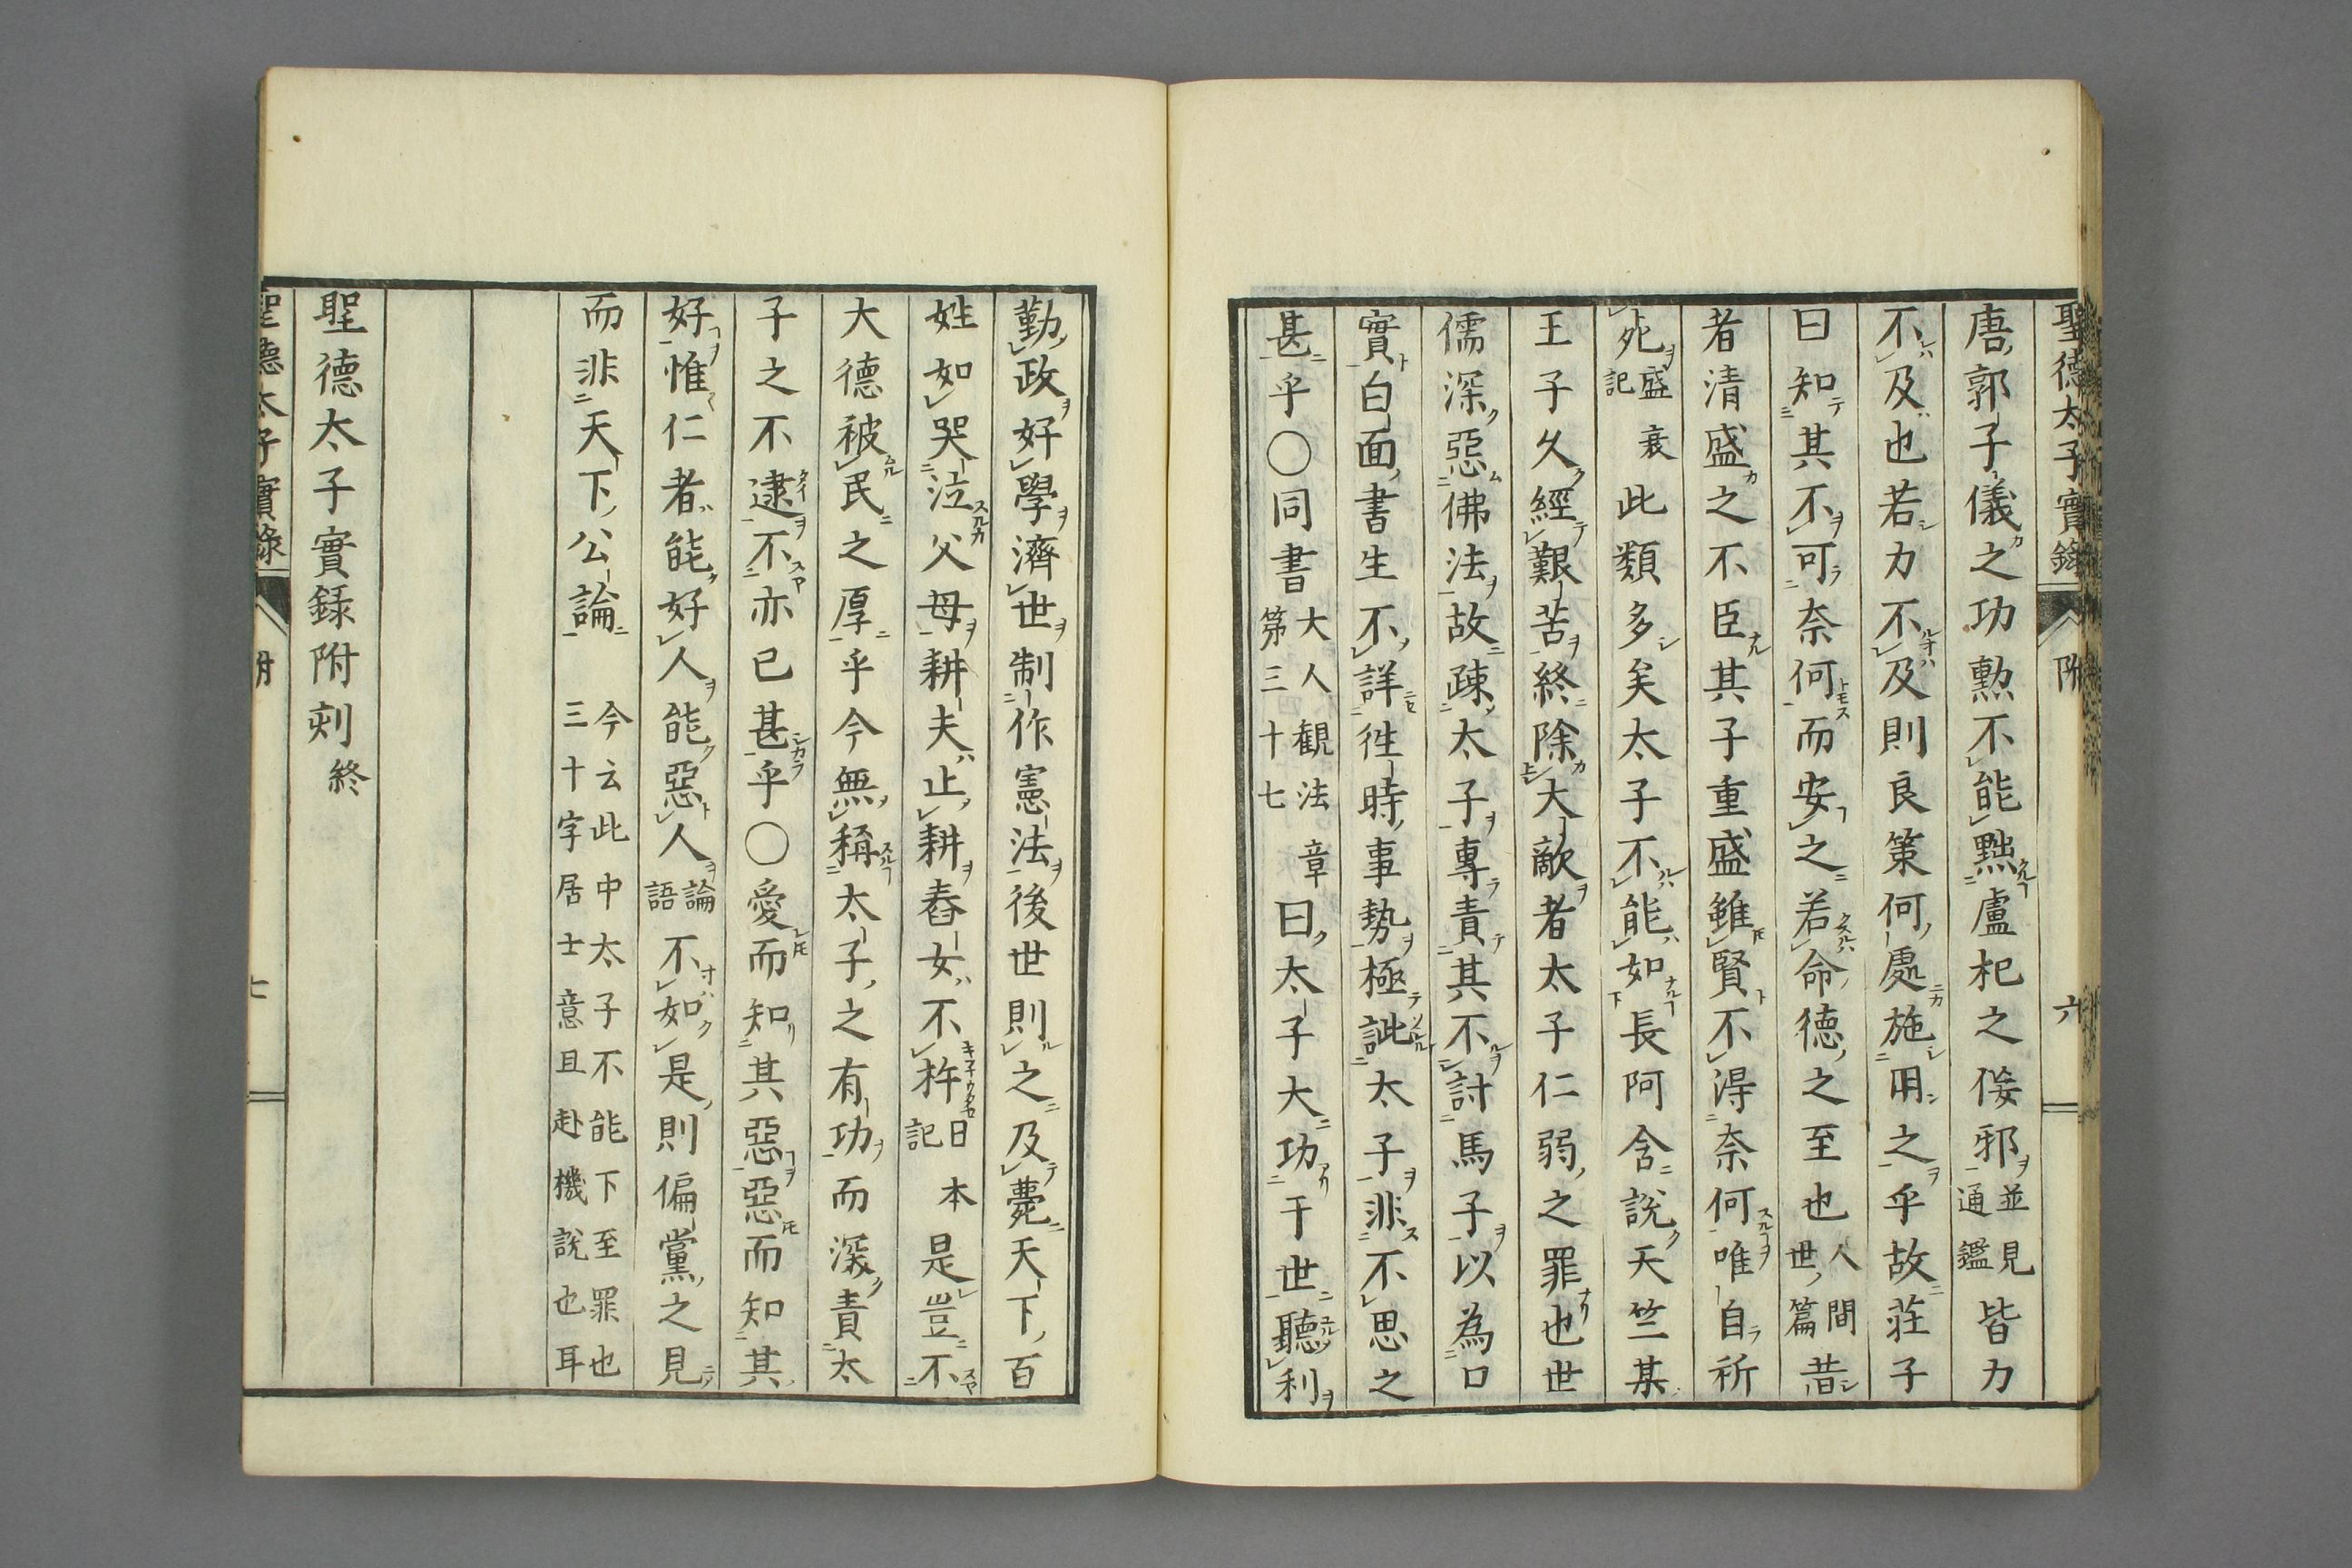 聖德太子實錄 附 六
唐郭子儀之功勲不能黜盧杞之佞邪並見通鑑皆力
不及也若力不及則良策何處施用之乎故荘子
曰知其不可奈何而安之若命德之至也人間世篇昔
者清盛之不臣其子重盛雖賢不得奈何唯自祈
死盛衰記此類多矣太子不能如長阿含説天竺某
王子久經艱苦終除大敵者太子仁弱之罪也世
儒深惡佛法故疎太子專責其不討馬子以為口
實白面書生不詳徃時事勢極訿太子非不思之
甚乎〇同書大人觀法第三十七章曰太子大功于世聽利
勤政好學濟世制作憲法後世則之及薨天下百
姓如哭泣父母耕夫止耕舂女不杵日本記是豈不
大德被民之厚乎今無稱太子之有功而深責太
子之不逮不亦已甚乎〇愛而知其惡惡而知其
好惟仁者能好人能惡人論語不如是則偏黨之見
而非天下公論今云此中太子不能下至罪也三十字居士意且赴機説也耳
聖德太子實録附刻終
聖德太子實錄 附 七